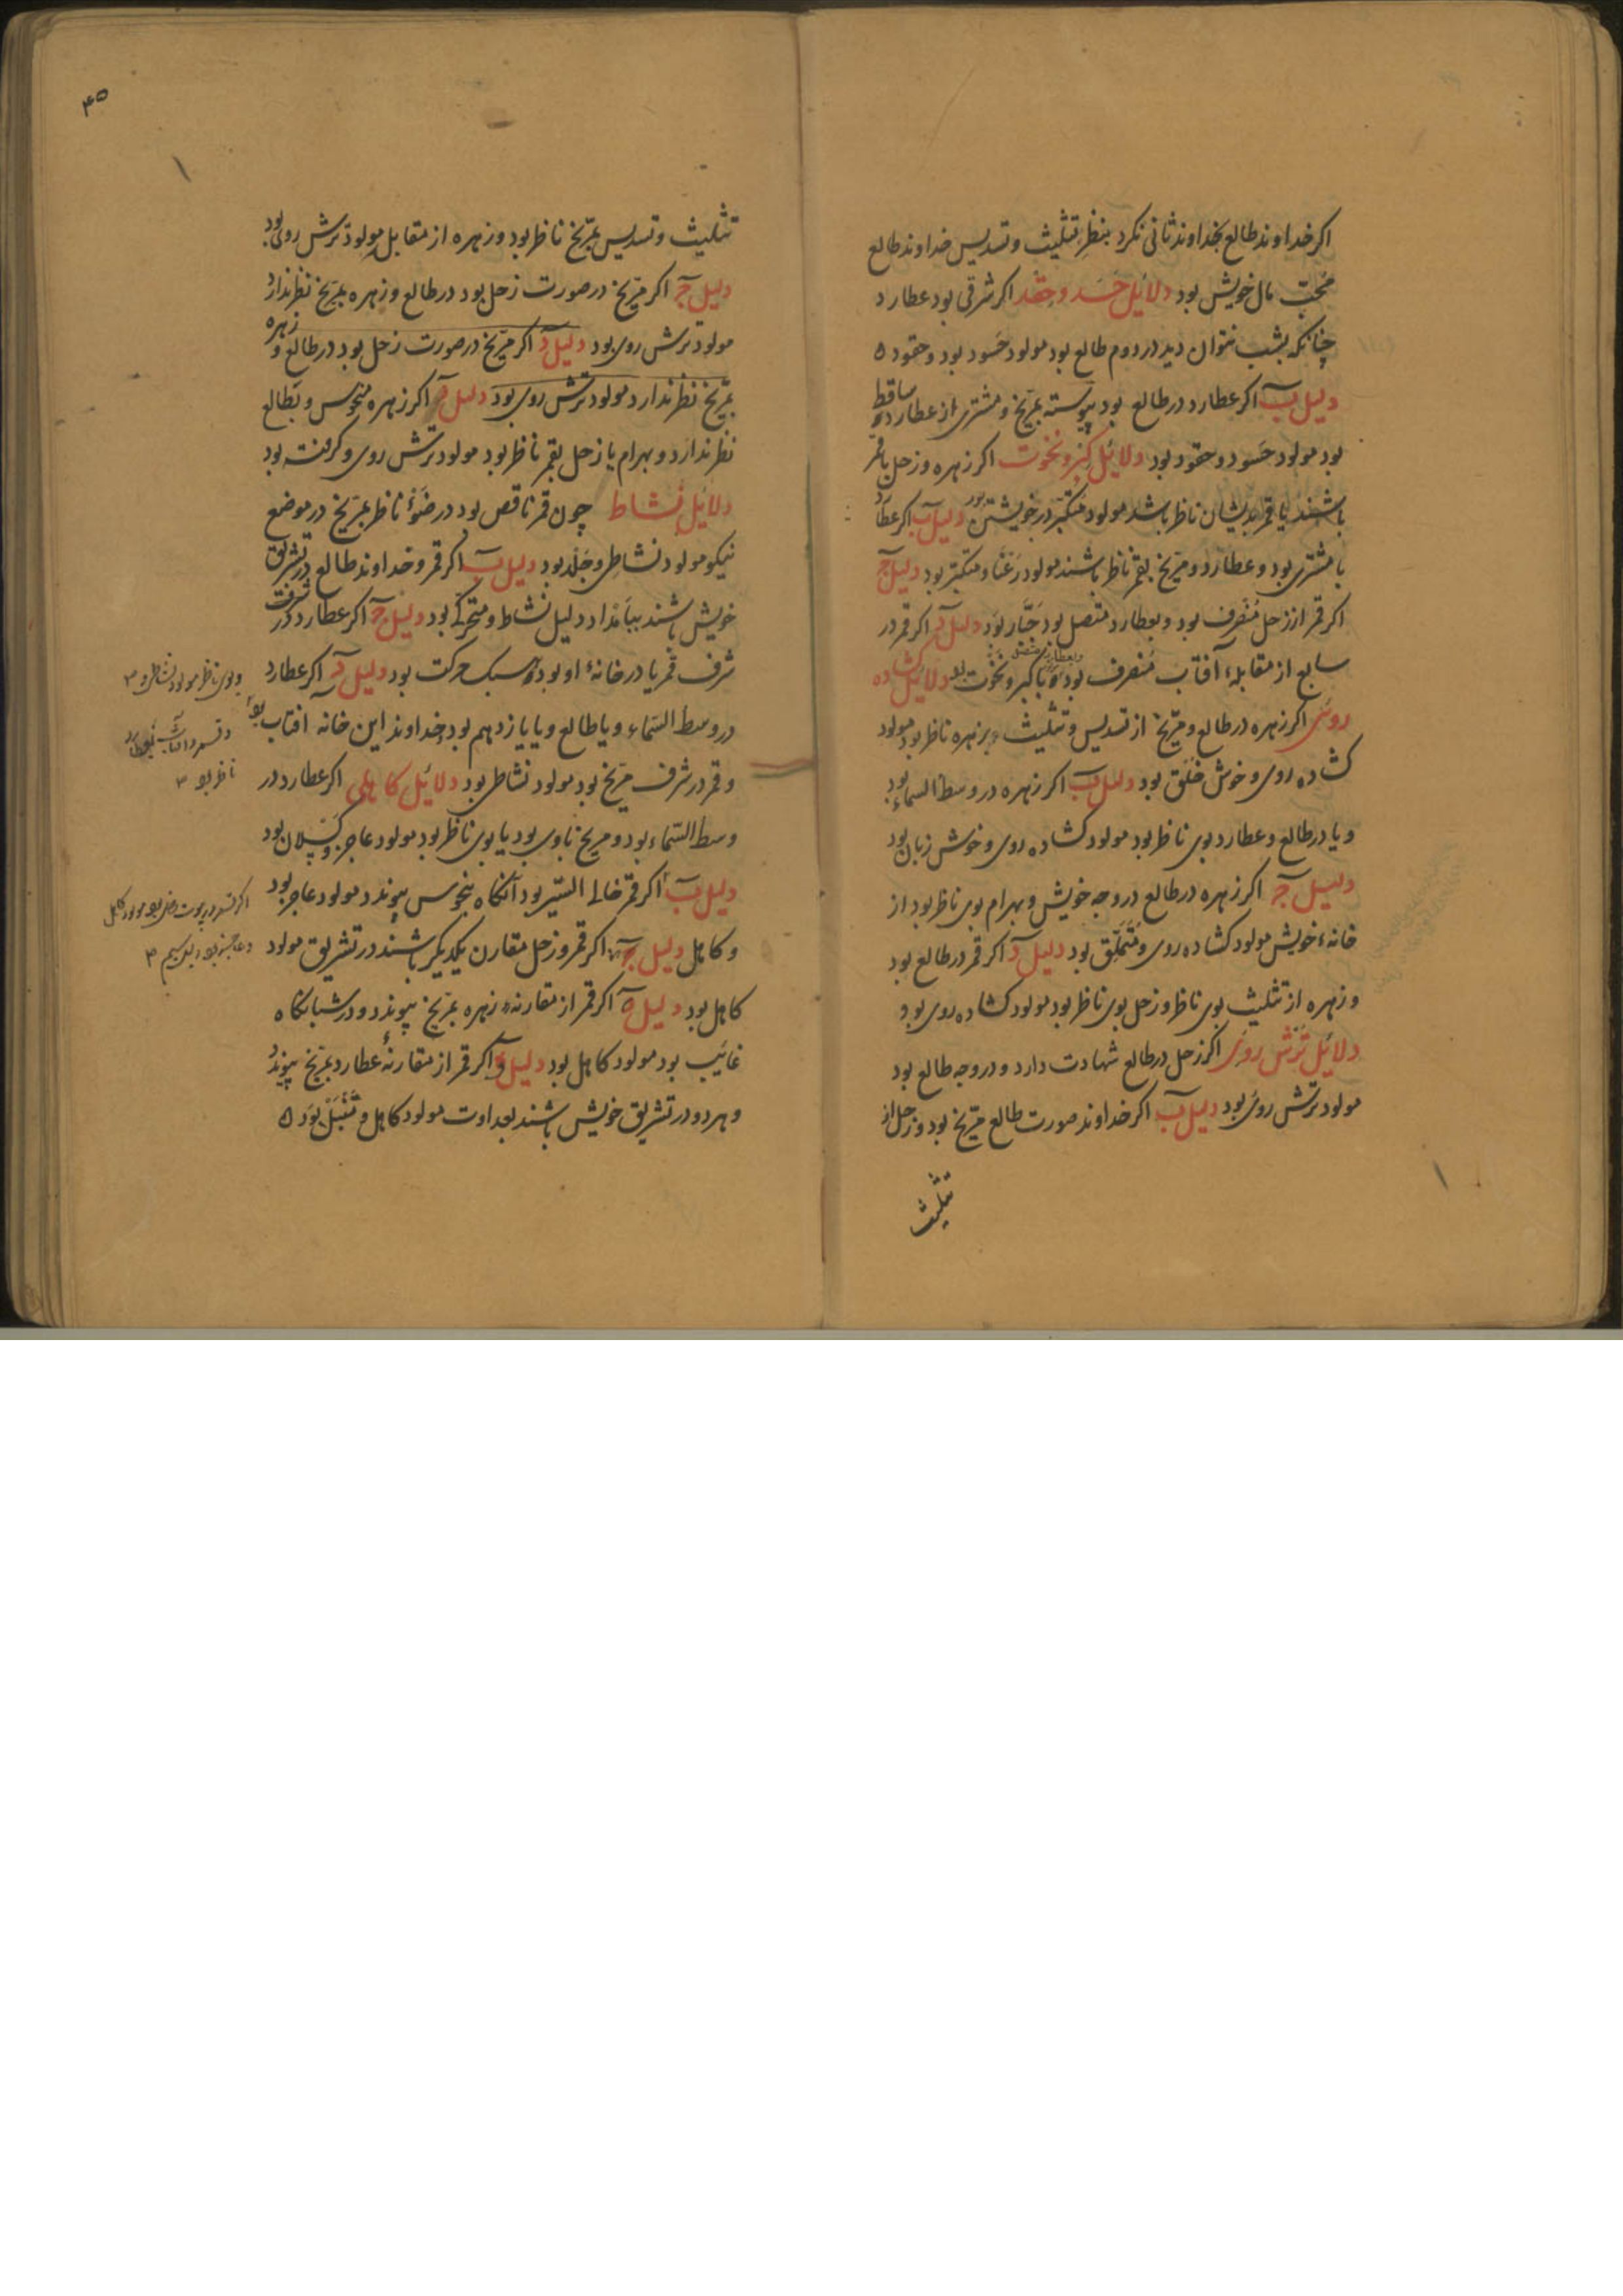 اکر خداوند طالع بخداوند ثانی نکرد بنظر تثلیث و تسدیس خداوند طالع
محبّ مال خویش بود دلائل حَسَد و حِقد اکر شرقی بود عطارد
چنانکه بشب نتوان دید در دوم طالع بود مولود حَسود بود و حقود ه
دلیل ب اکر عطارد در طالع بود پیوسته بمرّیخ و مشتری از عطارد ساقط
بود مولود حَسود و حقود بود دلائل کِبر و نخوت اکر زهره و زحل با قمر
باشند یا قمر بدیشان ناظر باشد مولود متکبّر در خویشتن بود دلیل ب اکر عطارد
با مشتری بود و عطارد و مرّیخ بقمر ناظر باشند مولود رَعنا و متکبّر بود دلیل ج
اکر قمر از زحل مُنصَرف بود و بعطارد متصل بود جَبّار بوَد دلیل د اکر قمر در
سابع از مقابلهٔ آفتاب مُنصرف بود و بعطارد متصل با کبر و نخوت بود دلائل کشاده
روی اکر زهره در طالع و مرّیخ از تسدیس و تثلیث بزهره ناظر بود مولود
کشاده روی و خوش خُلق بود دلیل ب اکر زهره در وسط السماء بود
و یا در طالع و عطارد بوی ناظر بود مولود کشاده روی و خوش زبان بود
دلیل ج اکر زهره در طالع در وجه خویش و بهرام بوی ناظر بود از
خانهٔ خویش مولود کشاده روی و مُتَملّق بود دلیل د اکر قمر در طالع بود
و زهره از تثلیث بوی ناظر و زحل بوی ناظر بود مولود کشاده روی بود
دلائل تُرُش روی اکر زحل در طالع شهادت دارد و در وجه طالع بود
مولود ترش روی بود دلیل ب اکر خداوند صورت طالع مرّیخ بود و زحل از
تثلیث
۴۵
تثلیث و تسدیس بمرّیخ ناظر بود و زهره از مقابل مولود ترش روی بود
دلیل ج اکر مرّیخ در صورت زحل بود در طالع و زهره بمرّیخ نظر ندارد
مولود ترش روی بود دلیل د اکر مرّیخ در صورت زحل بود در طالع و زهره
بمرّیخ نظر ندارد مولود ترش روی بود دلیل اکر زهره منحوس و بطالع
نظر ندارد و بهرام یا زحل بقمر ناظر بود مولود ترش روی و کرفته بود
دلائل نشاط چون قمر ناقص بود در ضَوْء ناظر بمرّیخ در موضع
نیکو مولود نشاطی و جَلد بود دلیل ب اکر قمر و خداوند طالع در تشریق
خویش باشند ببامداد دلیل نشاط و متحرک بود دلیل ج اکر عطارد در
شرف قمر یا در خانهٔ او بود سبک حرکت بود دلیل د اکر عطارد
در وسط السّماء و یا طالع و یا یازدهم بود خداوند این خانه افتاب بود
و قمر در شرف مرّیخ بود مولود نشاطی بود دلائل کاهلی اکر عطارد در
وسط السّماء بود و مریخ باوی بود یا بوی ناظر بود مولود عاجز و کَسلان بود
دلیل ب اکر قمر خالی السّیر بود آنکاه بنحوس پیوندد مولود عاجز بود
و کاهل دلیل ج اکر قمر و زحل مقارن یکدیکر باشند در تشریق مولود
کاهل بود دلیل اکر قمر از مقارنهٔ زهره بمرّیخ پیوندد و در شبانکاه
غائب بود مولود کاهل بود دلیل و اکر قمر از مقارنهٔ عطارد بمرّیخ پیوندد
و هر دو در تشریق خویش باشند بغداوت مولود کاهل و تَنْبَل بوَد ه
و بوی ناظر مولود نشاطی
ناظر بود